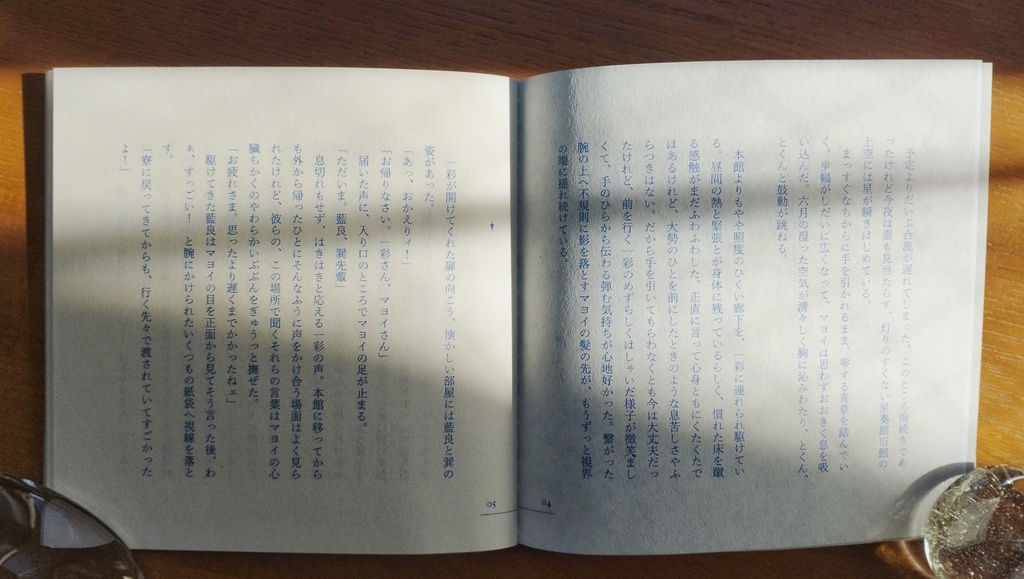 予定よりだいぶ合流が遅れてしまった。このところ雨続きであ
ったけれど今夜は雲も見当たらず、灯りのすくない星奏館旧館の
上空には星が瞬きはじめている。
まっすぐなちからに手を引かれるまま、雫する青草を踏んでい
く。歩幅がしだいに広くなって、マヨイは思わずおおきく息を吸
い込んだ。六月の湿った空気が清々しく胸に沁みわたり、とくん、
とくんと鼓動が跳ねる。
本館よりもやや照度のひくい廊下を、一彩に連れられ駆けてい
る。昼間の熱と緊張とが身体に残っているらしく、慣れた床を蹴
る感触がまだふわふわした。正直に言って心身ともにくたくたで
はあるけれど、大勢のひとを前にしたときのような息苦しさやふ
らつきはない。だから手を引いてもらわなくとも今は大丈夫だっ
たけれど、前を行く一彩のめずらしくはしゃいだ様子が微笑まし
くて、手のひらから伝わる弾む気持ちが心地好かった。繋がった
腕の上へ不規則に影を落とすマヨイの髪の先が、もうずっと視界
の端に揺れ続けている。
04
一彩が開けてくれた扉の向こう、懐かしい部屋には藍良と巽の
姿があった。
「あっ、おかえりィ!」
「お帰りなさい。一彩さん、マヨイさん」
届いた声に、入り口のところでマヨイの足が止まる。
「ただいま。藍良、巽先輩」
息切れもせず、はきはきと応える一彩の声。本館に移ってから
も外から帰ったひとにそんなふうに声をかけ合う場面はよく見ら
れたけれど、彼らの、この場所で聞くそれらの言葉はマヨイの心
臓ちかくのやわらかいぶぶんをぎゅうっと撫ぜた。
「お疲れさま。思ったより遅くまでかかったねェ」
駆けてきた藍良はマヨイの目を正面から見てそう言った後、わ
ぁ、すっごい! と腕にかけられたいくつもの紙袋へ視線を落と
す。
「寮に戻ってきてからも、行く先々で渡されていてすごかった
よ!」
05